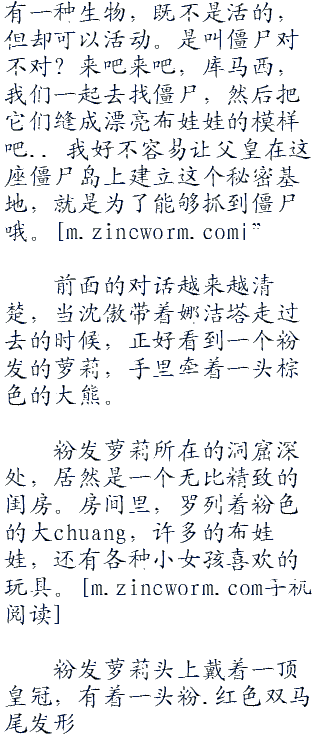 有一种生物，既不是活的，
但却可以活动。是叫僵尸对
不对？来吧来吧，库马西，
我们一起去找僵尸，然后把
它们缝成漂亮布娃娃的模样
吧.. 我好不容易让父皇在这
座僵尸岛上建立这个秘密基
地，就是为了能够抓到僵尸
哦。[m.zincworm.com]”
前面的对话越来越清
楚，当沈傲带着娜洁塔走过
去的时候，正好看到一个粉
发的萝莉，手里牵着一头棕
色的大熊。
粉发萝莉所在的洞窟深
处，居然是一个无比精致的
闺房。房间里，罗列着粉色
的大chuang，许多的布娃
娃，还有各种小女孩喜欢的
玩具。[m.zincworm.com手机
阅读]
粉发萝莉头上戴着一顶
皇冠，有着一头粉.红色双马
尾发形